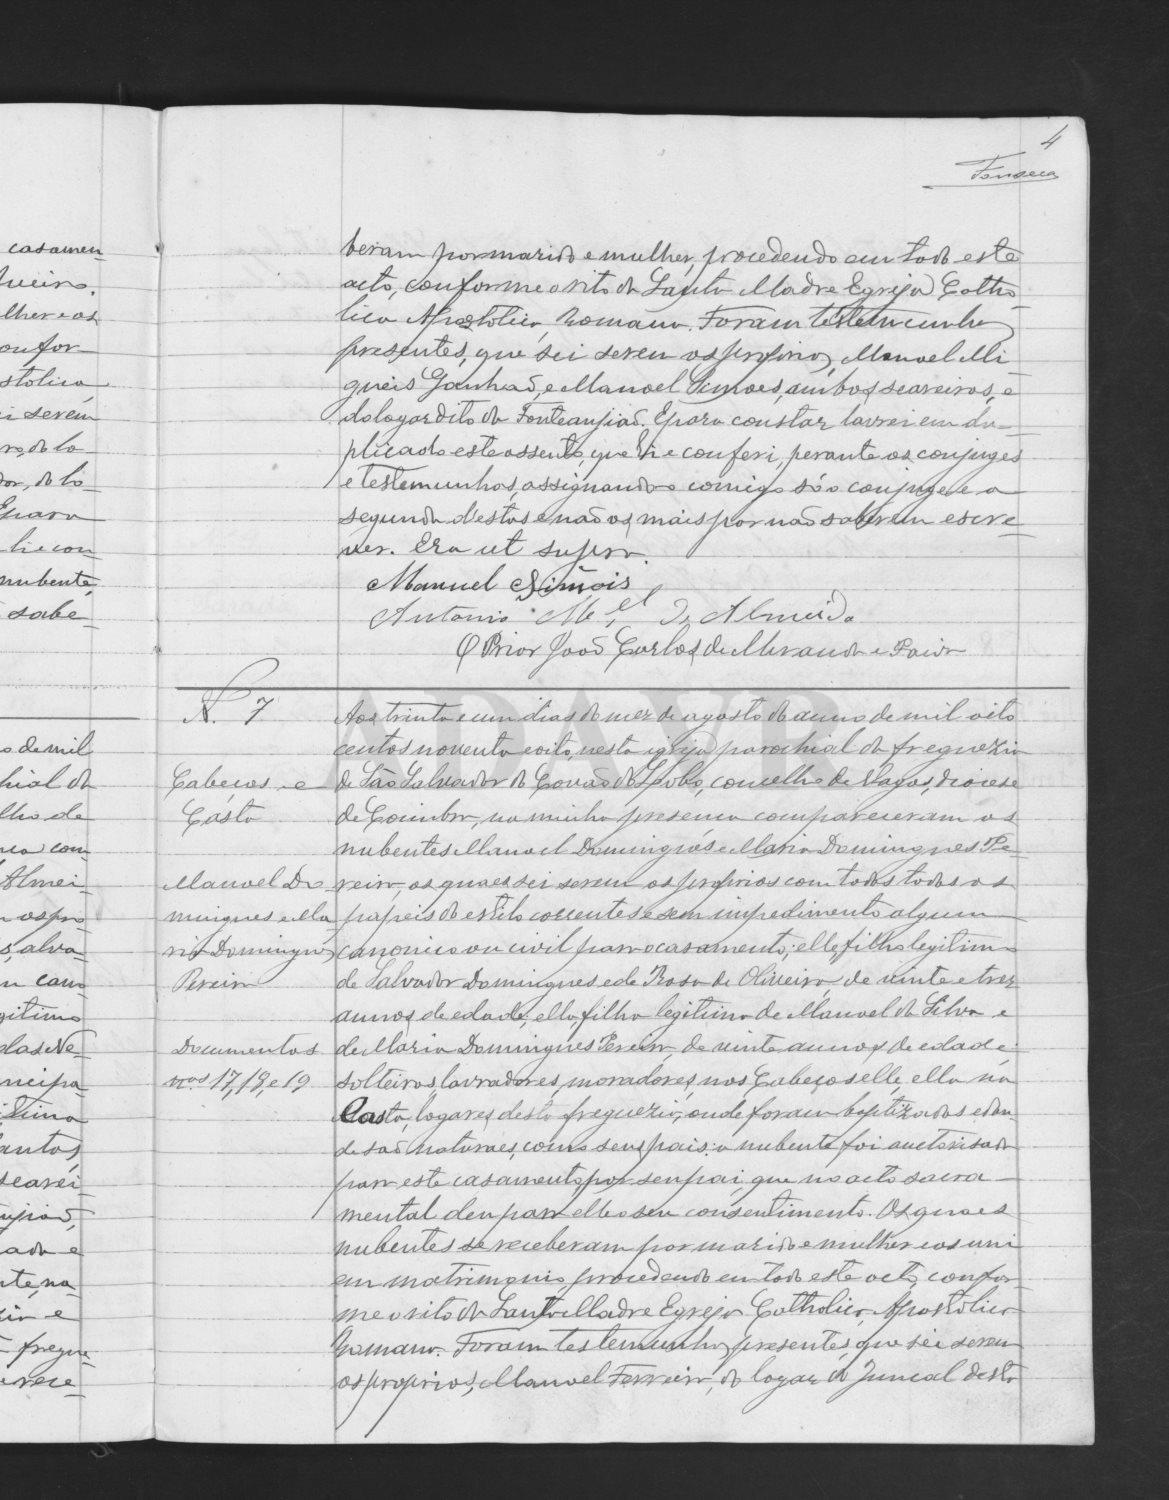 4
Fonseca
casamen
lher e os
confor
stolica
i serem
ro, do lo
dor, do lo
E para
li e con
nubente,
sabe
o de mil
chial da
lho de
com
Almei
os pro
s, alva
gitimo
das Ne
ncipa
gitima
antos,
searei
ada e
te, na
e
fregue
rece
beram por marido e mulher, procedendo em todo este
acto, conforme o rito da Santa Madre Egreja Catho
lica Apostolica, Romana. Foram testemunhas
presentes, que sei serem os proprios, Manoel Mi
gueis Ganhaõ, e Manoel Simoes, ambos seareiros, e
do logar dito da Fonteanjiaõ. E para constar lavrei em du
plicado este assento, que li e conferi, perante os conjuges
e testemunhas, assignando o comigo só o conjuge e a
segunda destas e naõ os mais por naõ saberem escre
ver. Era ut supra.
Manuel Simois
Antonio M.el d'Almeida
O Prior Joaõ Carlos de Miranda e Paiva
ADAVR
N. 7
Cabeços e
Casta
Manoel Do
mingues e Ma
ria Domingues
Pereira
Documentos
nos 17, 18, e 19
Aos trinta e um dias do mez de agosto do anno de mil oito
centos noventa e oito, nesta igreja parochial da freguezia
de São Salvador do Covaõ do Lobo, concelho de Vagos, diocese
de Coimbra, na minha presença compareceram os
nubentes Manoel Domingues e Maria Domingues Pe
reira, os quaes sei serem os proprios com todos todos os
papeis do estilo correntes e sem impedimento algum
canonico ou civil para o casamento; elle, filho legitimo
de Salvador Domingues e de Rosa de Oliveira, de vinte e trez
annos de edade, ella, filha legitima de Manoel da Silva e
de Maria Domingues Pereira, de vinte annos de edade;
solteiros, lavradores, moradores, nos Cabeços elle, ella na
Casta, logares desta freguezia, onde foram baptizados e don
de saõ naturaes, como seus pais: a nubente foi auctorisada
para este casamento, por seu pai, que no acto sacra
mental deu para elle o seu consentimento. Os quaes
nubentes se receberam por marido e mulher e os uni
em matrimonio procedendo em todo este acto, confor
me o rito da Santa Madre Egreja Catholica, Apostolica
Romana. Foram testemunhas presentes, que sei serem
os proprios, Manoel Ferreira, do logar do Juncal desta